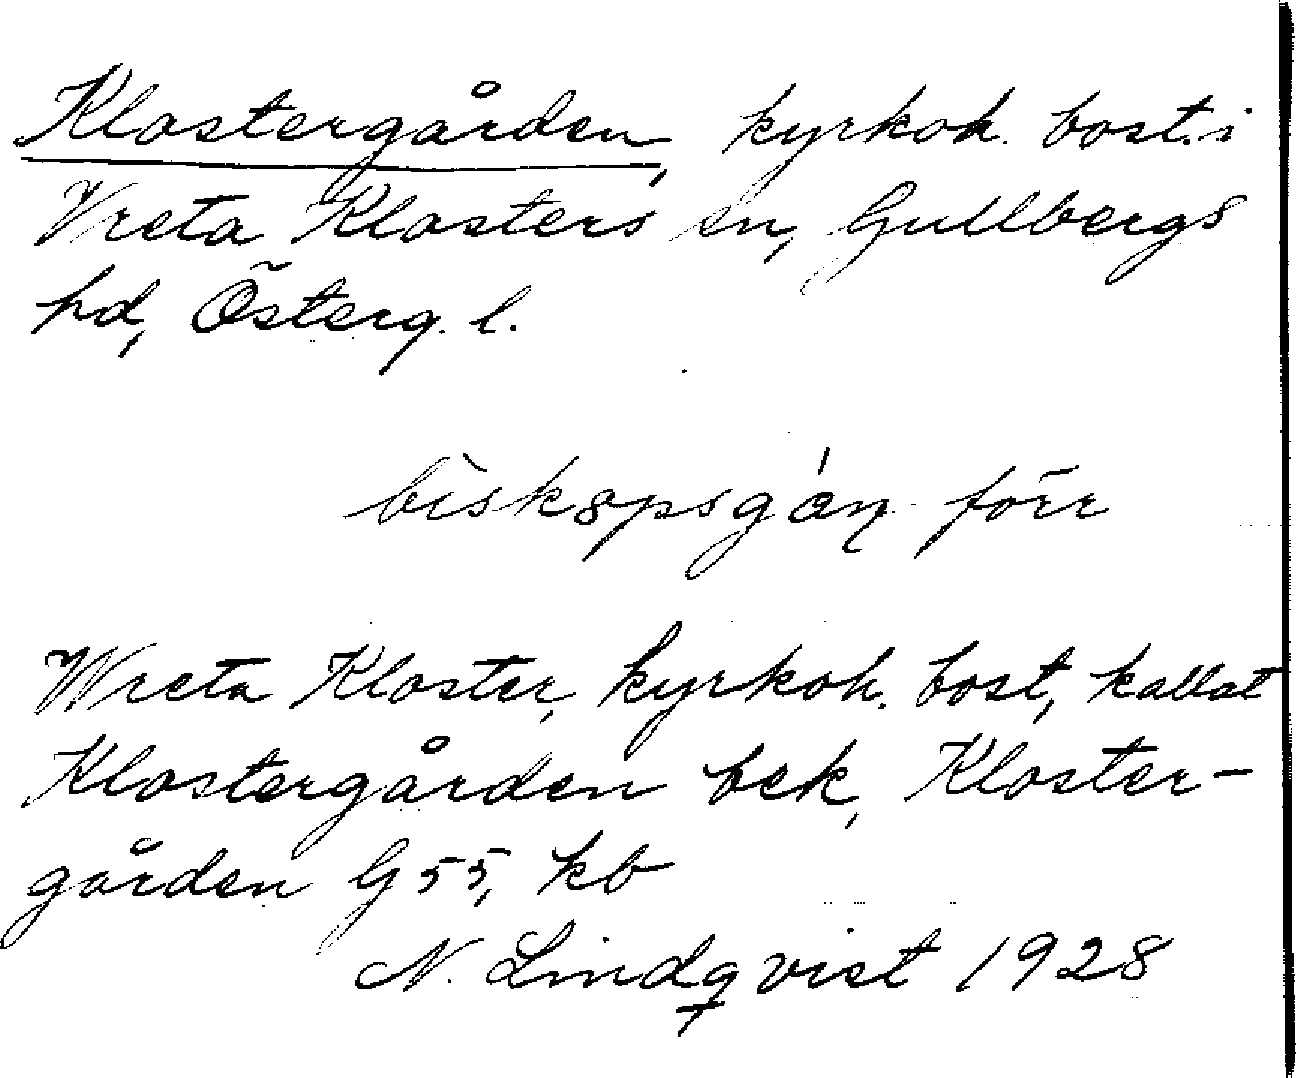 Klostergården, kyrkoh. bost. i
Vreta Klosters sn, Gullbergs
hd, Österg. l.
förr
Wreta Kloster, kyrkoh. bost, kallat
Klostergården bek, Kloster-
gården G 55, kb
N. Lindqvist 1928